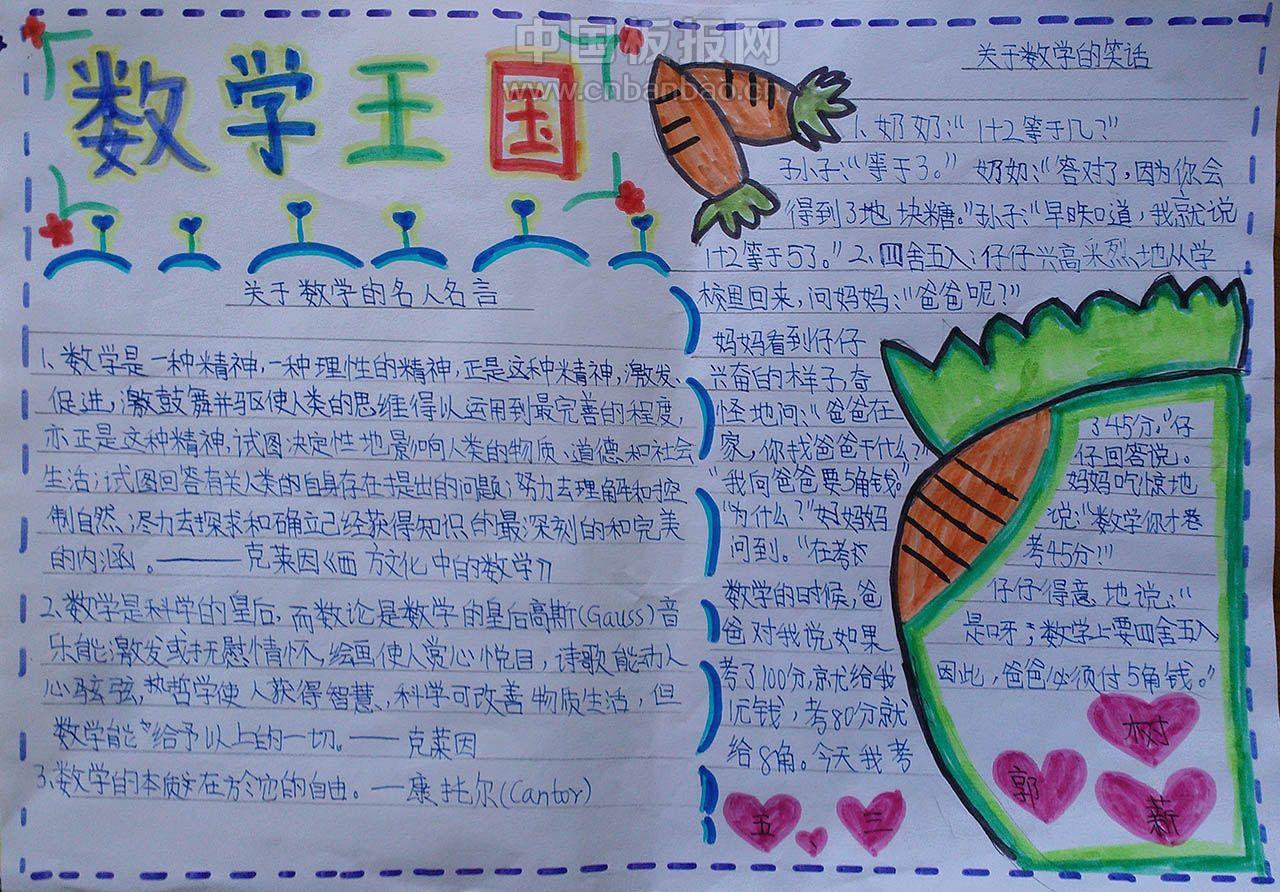 中国板报网
www.chbanbao.cn
数学王国
关于数学的名人名言
1、数学是一种精神,一种理性的精神,正是这种精神,激发、
促进,激鼓舞并驱使人类的思维得以运用到最完善的程度,
亦正是这种精神,试图决定性地影响人类的物质、道德和社会
生活;试图回答有关人类的自身存在提出的问题;努力去理解和控
制自然;尽力去探求和确立己经获得知识的最深刻的和完美
的内涵。———克莱因《西方文化中的数学》
2、数学是科学的皇后,而数论是数学的皇后高斯(Gauss)音
乐能激发或抚慰情怀,绘画使人赏心悦目,诗歌能动人
心弦,哲学使人获得智慧、科学可改善物质生活,但
数学能给予以上的一切。——克莱因
3、数学的本质在於它的自由。—康托尔(Cantor)
关于数学的笑话
1、奶奶:“1+2等于几?”
孙子:“等于3。” 奶奶:“答对了,因为你会
得到3块糖。”孙子:“早知道,我就说
1+2等于5了。”2、四舍五入:仔仔兴高采烈地从学
校里回来,问妈妈:“爸爸呢?”
妈妈看到仔仔
兴奋的样子,奇
怪地问:“爸爸在
家,你找爸爸干什么?”
“我向爸爸要5角钱。”
“为什么?”妈妈
问到。“在考
数学的时候,爸
爸对我说,如果
考了100分,就给我
1元钱,考80分就
给8角。今天我考
了45分,”仔
仔回答说。
妈妈吃惊地
说:“数学你才
考45分?!”
仔仔得意地说:“
是呀;数学上要四舍五入
因此,爸爸必须付5角钱。”
五、三
郭
树
薪